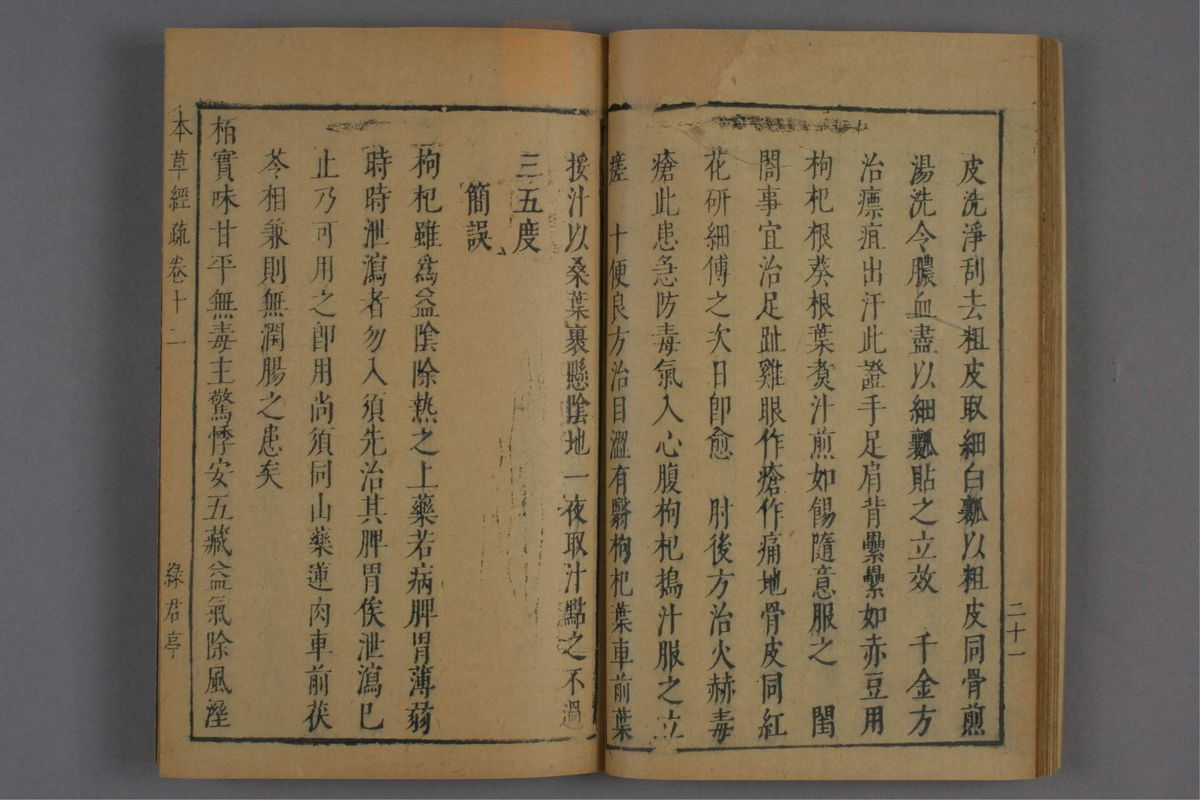 二十一
皮洗淨刮去粗皮取細白瓤以粗皮同骨煎
湯洗令膿血盡以細瓤貼之立效　千金方
治瘭疽出汗此證手足肩背纍纍如赤豆用
枸杞根葵根葉煑汁煎如餳隨意服之　閨
閤事宜治足趾雞眼作瘡作痛地骨皮同紅
花研細傅之次日卽愈　肘後方治火赫毒
瘡此患急防毒氣入心腹枸杞搗汁服之立
瘥　十便良方治目澀有翳枸杞葉車前葉
挼汁以桑葉裹懸陰地一夜取汁點之不過
三五度
簡誤
枸杞雖爲益陰除熱之上藥若病脾胃薄弱
時時泄瀉者勿入須先治其脾胃俟泄瀉已
止乃可用之卽用尚須同山藥蓮肉車前茯
苓相兼則無潤腸之患矣
栢實味甘平無毒主驚悸安五藏益氣除風溼
本草經疏卷十二
綠君亭